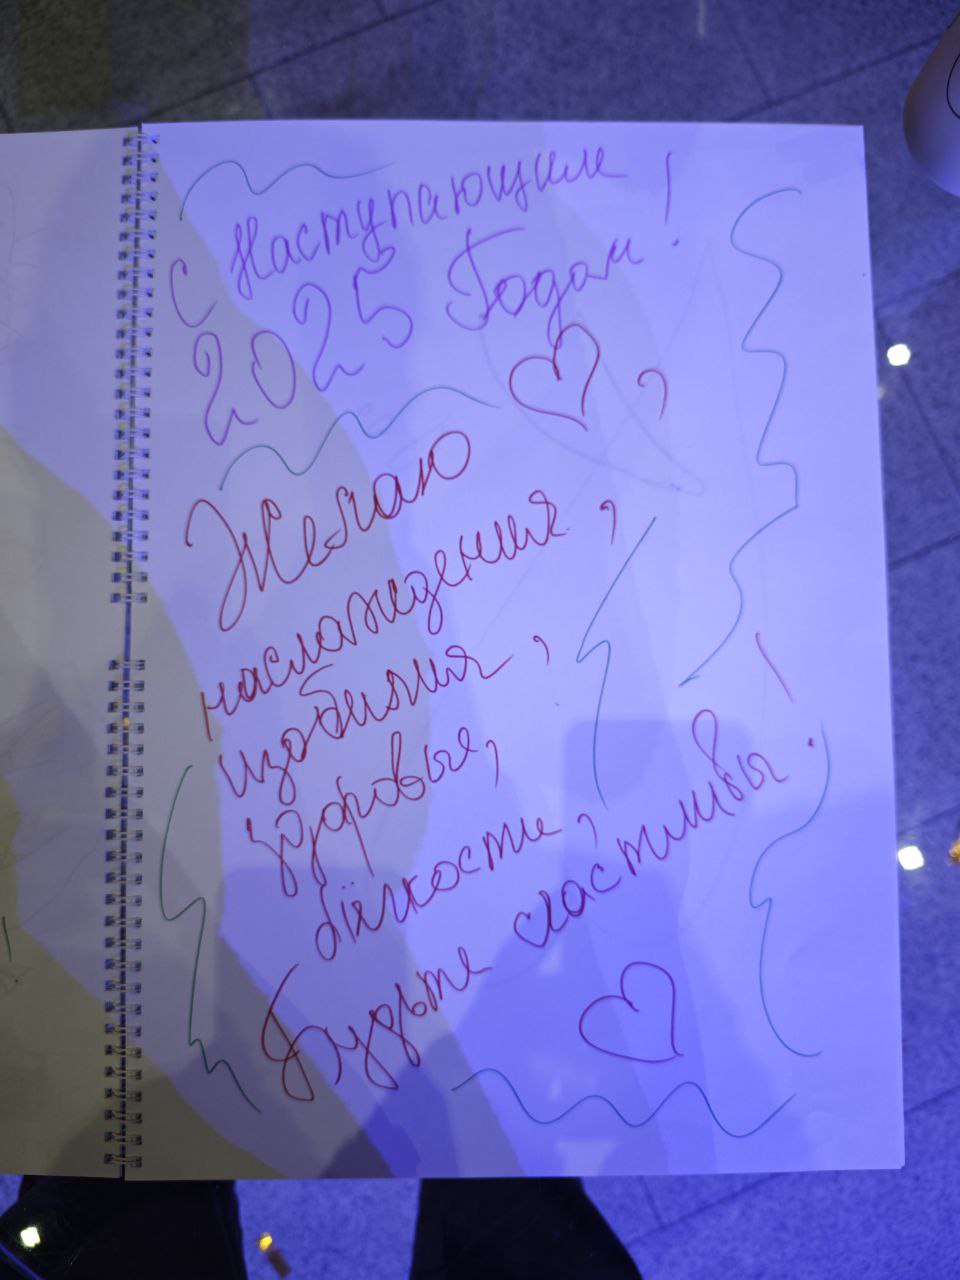 С Наступающим
2025 Годом!
Желаю ,
наслаждения,
изобилия,
здоровье,
Будьте счастливы!